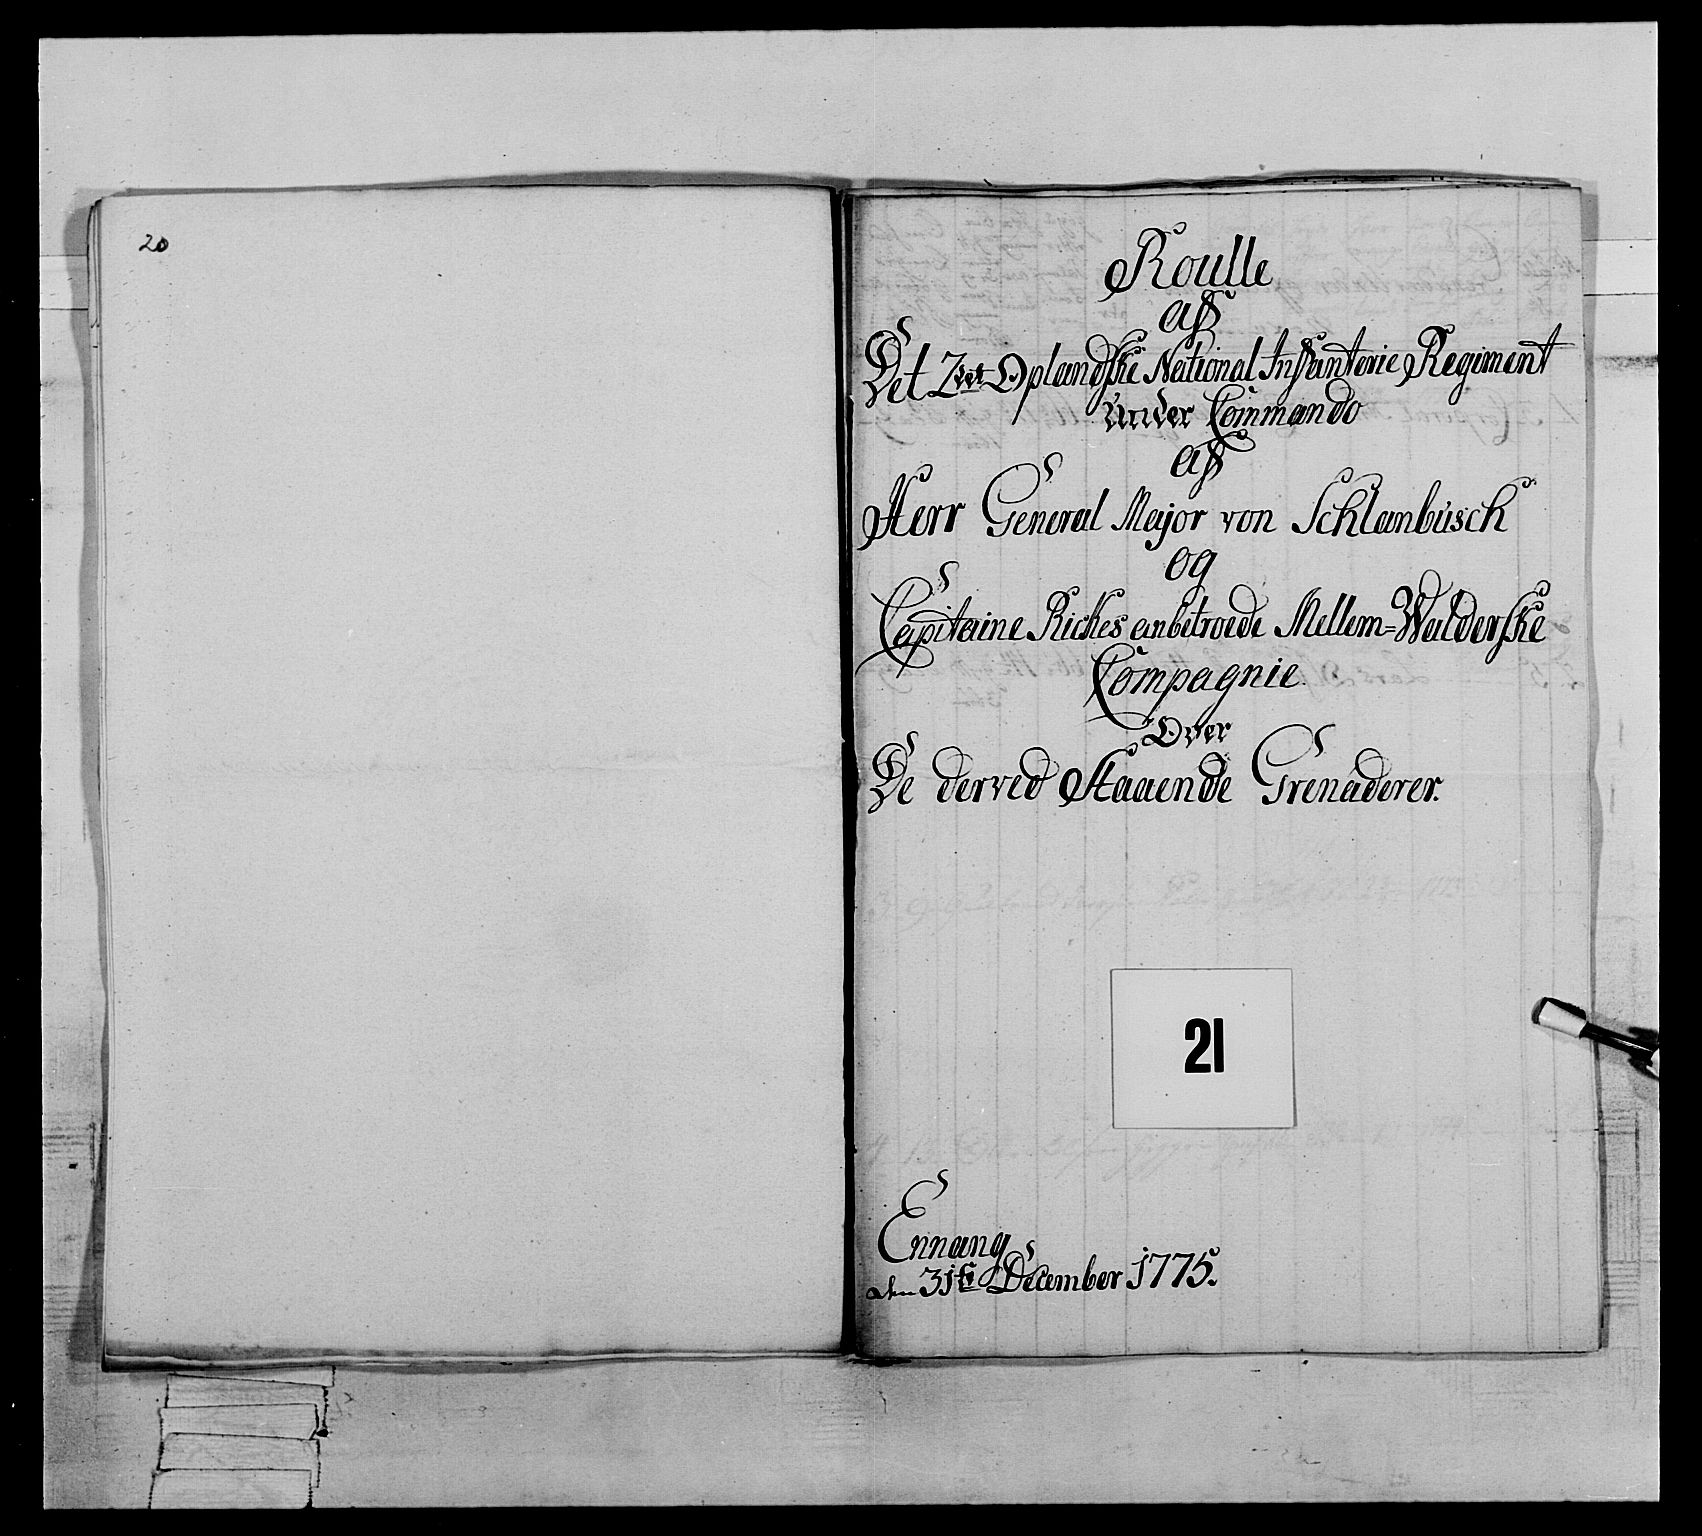 20
Roulle
af
Det 2det Oplandske National Infanterie Regiment
Under Commando
af
Herr General Major von Schlanbusch
og
Capitaine Rickes anbetroede Mellem=Walderske
Compagnie.
Over
De derved Staaende Grenaderer.
21
Ennang
den 31te December 1775.